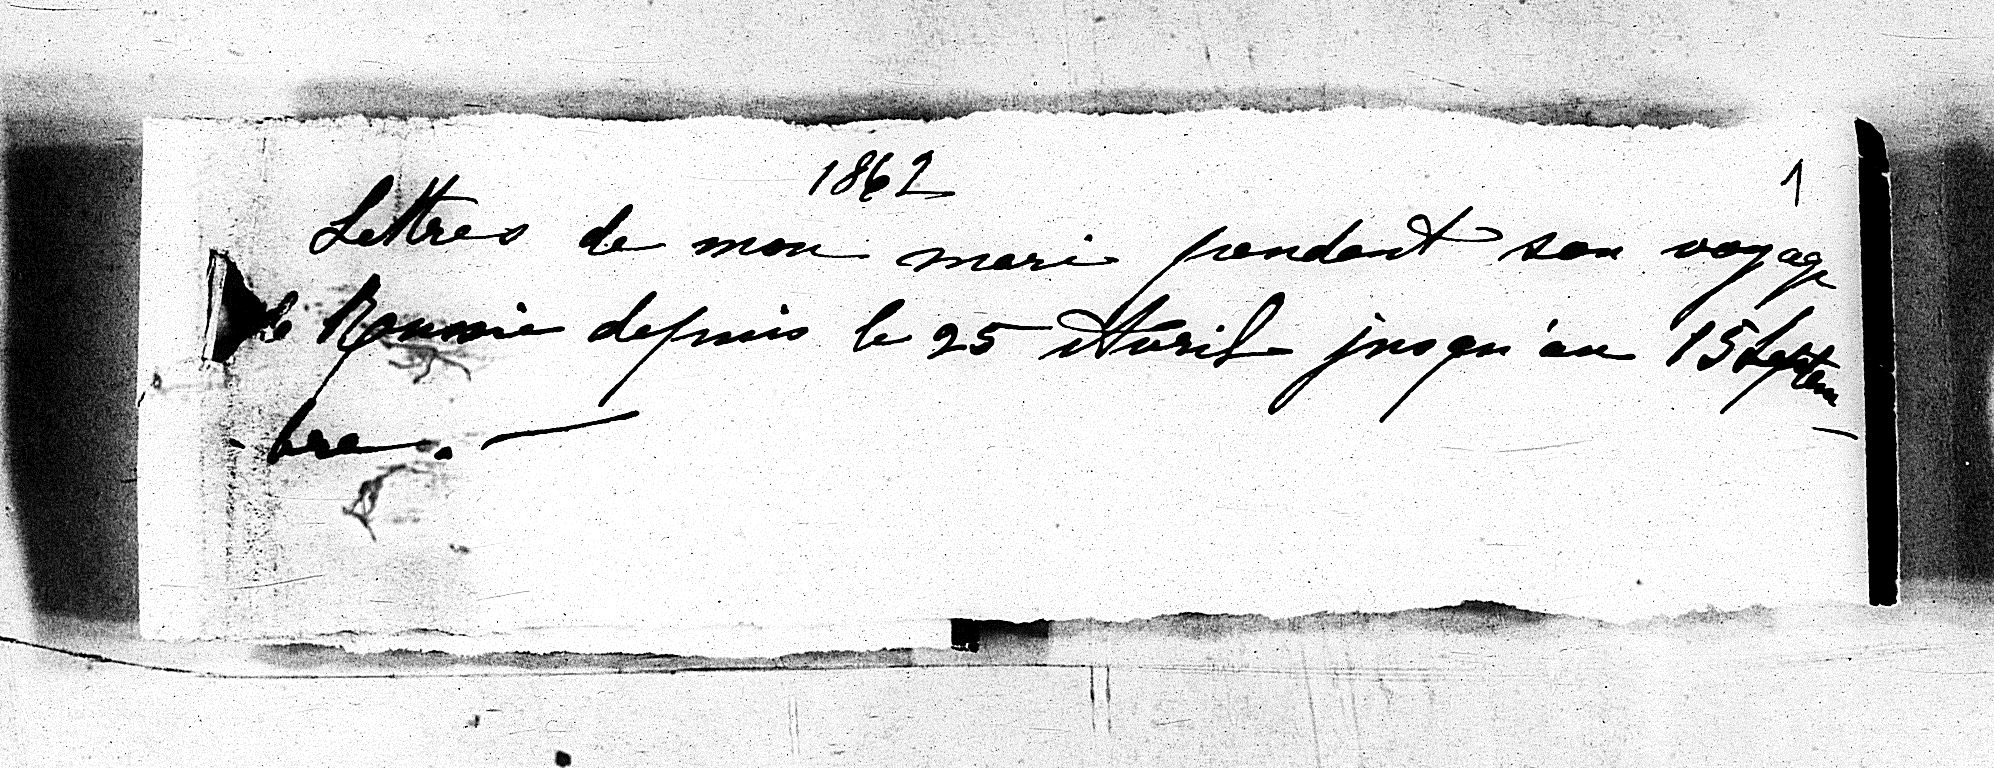 1862
1
Lettres de mon mari pendant son voyage
de Roumanie depuis le 25 Avril jusqu'au 15 Septem
- bre. —